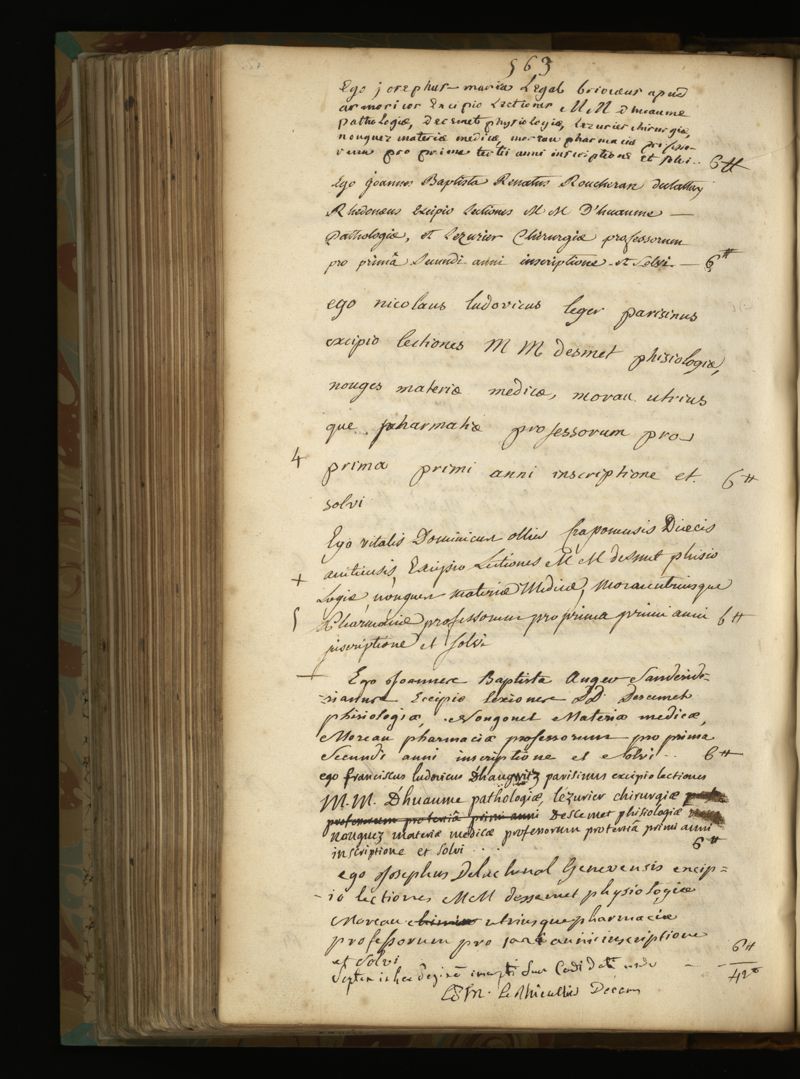 563
Ego josephus maria Legal briocæus apud
armoricos Excipio Lectiones M M Dhuaume
pathologiæ, Descemet physiologiæ, Lezurier chirurgiæ,
nouguez materiæ medicæ, moreau pharmaciæ professo-
rum pro prima tertii anni inscriptione et solvi.. 6#
Ego joannes Baptista Renatus Roucheran
Rhedonæus Excipio Lectiones M M D'huaume —
Pathologiæ, et Lezurier Chirurgiæ professorum
pro primâ Secundi anni inscriptione et Solvi — 6#
ego nicolaus ludovicus leger parisinus
excipio lectiones M M desmet phisiologiæ,
nouges materiæ medicæ, morau utrius
que pharmatiæ professorum pro
4 prima primi anni inscriptione et 6#
solvi
Ego vitalis Dominicus ollier Diæcis
Excipio Lectiones M M desmet phisio
+ Logiæ, nouguez materiæ Medicæ, Morau utriusque
Pharmaciæ professorum pro prima primi anni 6#
inscriptione et solvi
Ego Joannes Baptista Auger
Excipio lexiones DD Descemet
phisiologiæ, Nougonet Materiæ medicæ,
Moreau pharmaciæ professorum pro prima
Secundi anni inscriptione et Solvi .. 6#
ego franciscus ludovicus Dhaugwitz parisinus excipio lectiones
M.M. Dhuaume pathologiæ, lezurier chirurgiæ
professorum pro tertiâ primi anni Descemet phisiologiæ
nouquez materiæ medicæ professorum pro tertiâ primi anni
inscriptione et solvi .... 6#
ego Josephus Delachenal Genevensis excip=
io lectiones M M dessemet physiologiæ
Moreau utriusque pharmaciæ
professorum pro anni inscriptione
et Solvi 6#
42#
Th. Le Thieullier Decan